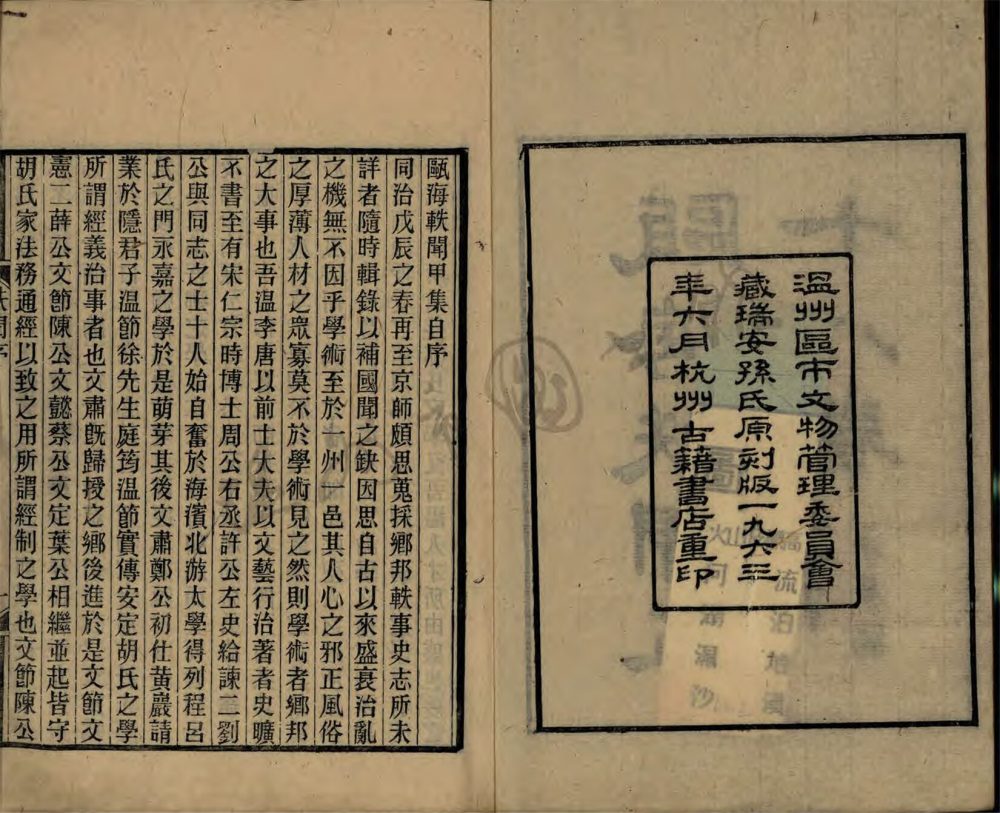 溫州區市文物管理委員會
藏瑞安孫氏原刻版一九六三
年六月杭州古籍書店重印
甌海軼聞甲集自序
同治戊辰之春再至京師頗思蒐採鄉邦軼事史志所未
詳者隨時輯錄以補國聞之缺因思自古以來盛衰治亂
之機無不因乎學術至於一州一邑其人心之邪正風俗
之厚薄人材之眾寡莫不於學術見之然則學術者鄉邦
之大事也吾溫李唐以前士大夫以文藝行治著者史曠
不書至有宋仁宗時博士周公右丞許公左史給諫二劉
公與同志之士十人始自奮於海濱北游太學得列程呂
氏之門永嘉之學於是萌芽其後文肅鄭公初仕黃巖請
業於隱君子溫節徐先生庭筠溫節實傳安定胡氏之學
所謂經義治事者也文肅既歸授之鄉後進於是文節文
憲二薛公文節陳公文懿蔡公文定葉公相繼並起皆守
胡氏家法務通經以致之用所謂經制之學也文節陳公